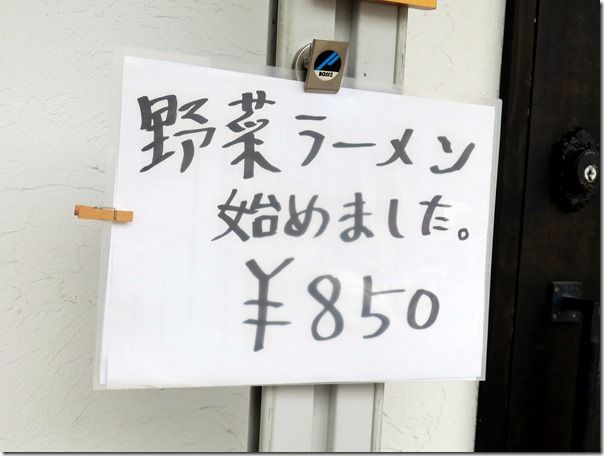 BOSS
野菜ラーメン
始めました。
¥850